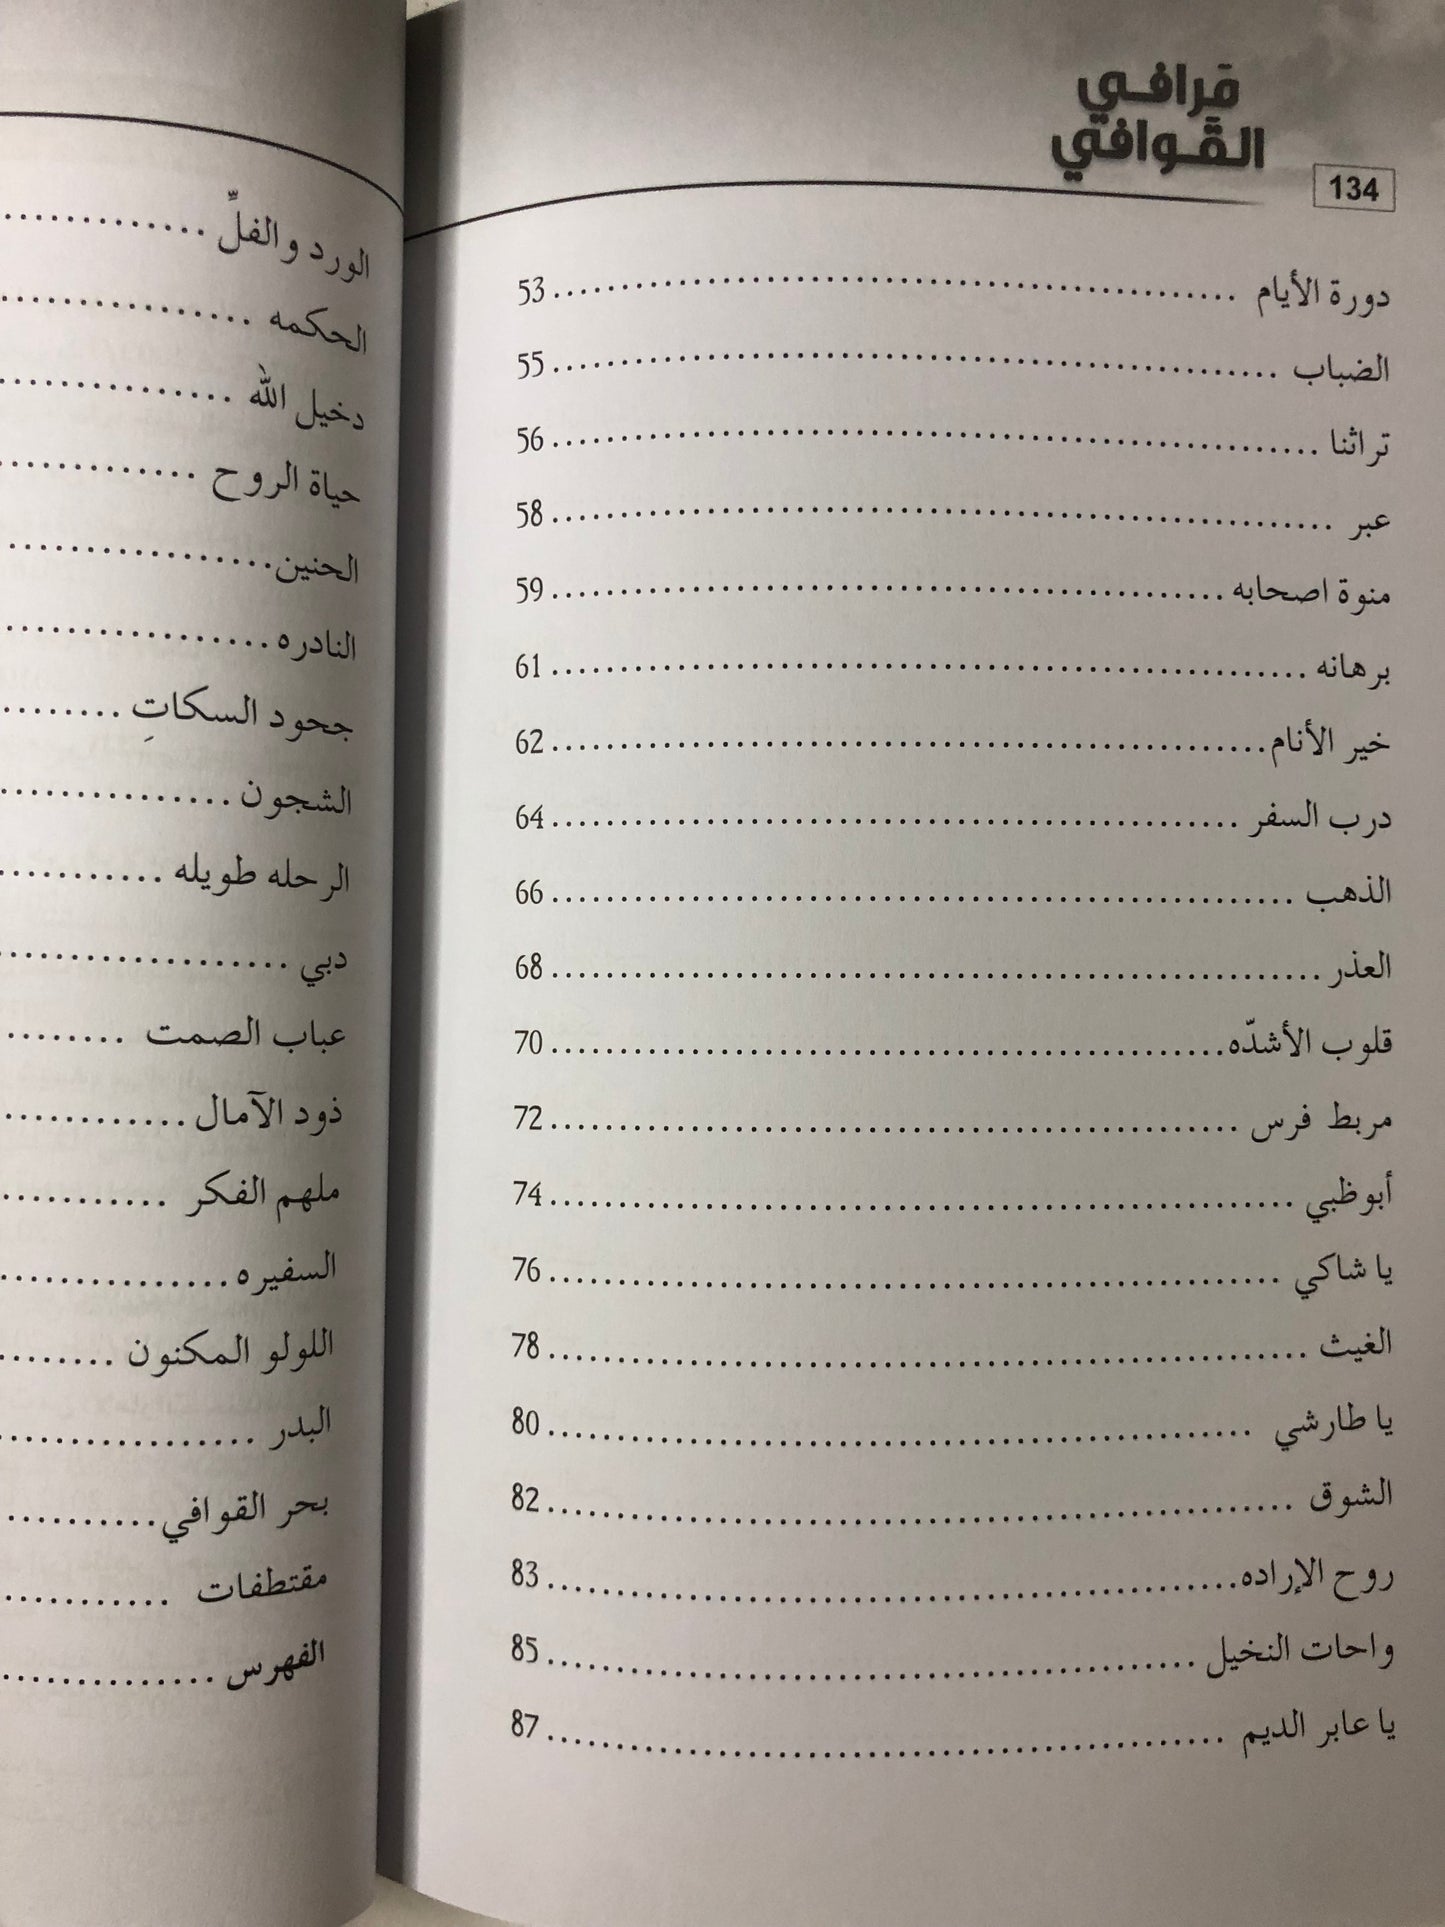 مَرافـي
القَـوافي
134
دورة الأيام ........ 53
الضباب ........ 55
تراثنا ........ 56
عبر ........ 58
منوة اصحابه ........ 59
برهانه ........ 61
خير الأنام ........ 62
درب السفر ........ 64
الذهب ........ 66
العذر ........ 68
قلوب الأشدّه ........ 70
مربط فرس ........ 72
أبوظبي ........ 74
يا شاكي ........ 76
الغيث ........ 78
يا طارشي ........ 80
الشوق ........ 82
روح الإراده ........ 83
واحات النخيل ........ 85
يا عابر الديم ........ 87
الورد والفلِّ ........
الحكمه ........
دخيل الله ........
حياة الروح ........
الحنين ........
النادره ........
جحود السكاتِ ........
الشجون ........
الرحله طويله ........
دبي ........
عباب الصمت ........
ذود الآمال ........
ملهم الفكر ........
السفيره ........
اللولو المكنون ........
البدر ........
بحر القوافي ........
مقتطفات ........
الفهرس ........